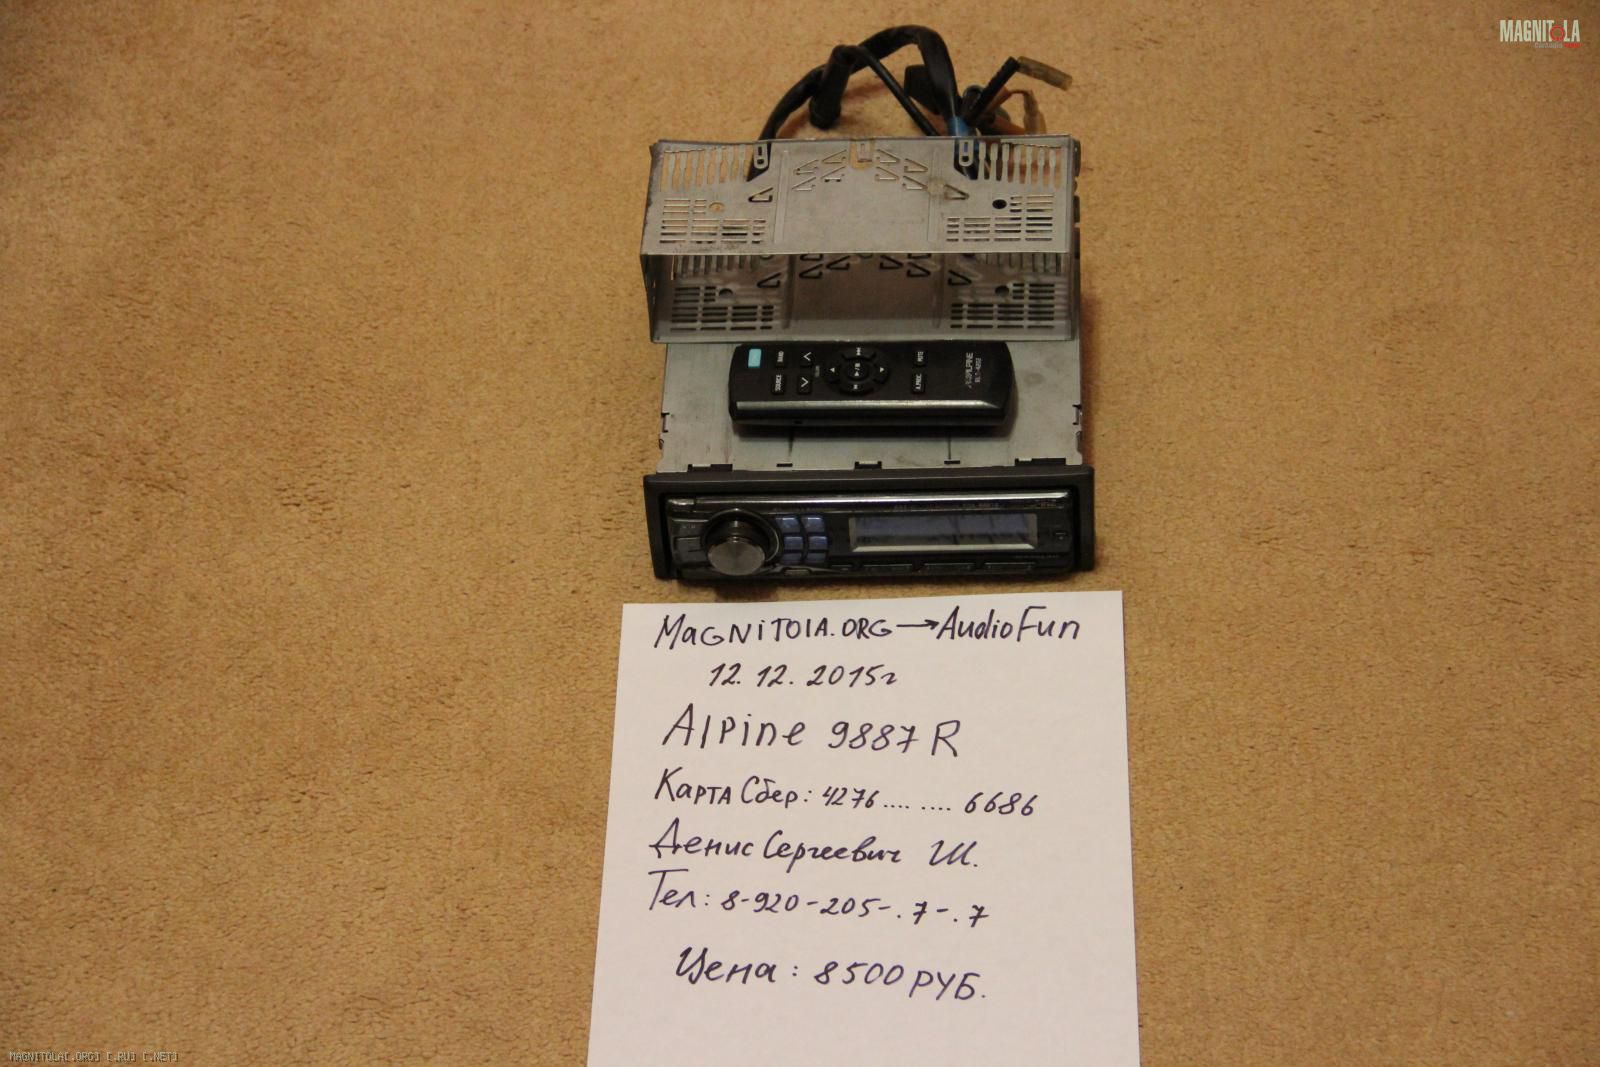 MAGNITOLA
SOURCE
BAND
A.PROC
MUTE
ALPINE
MAGNITOlA.ORG → AudioFun
12.12.2015г
Alpine 9887R
Карта Сбер: 4276.... .... 6686
Денис Сергеевич Ш.
Тел: 8-920-205-.7-.7
Цена: 8500 РУБ.
MAGNITOLA[.ORG] [.RU] [.NET]